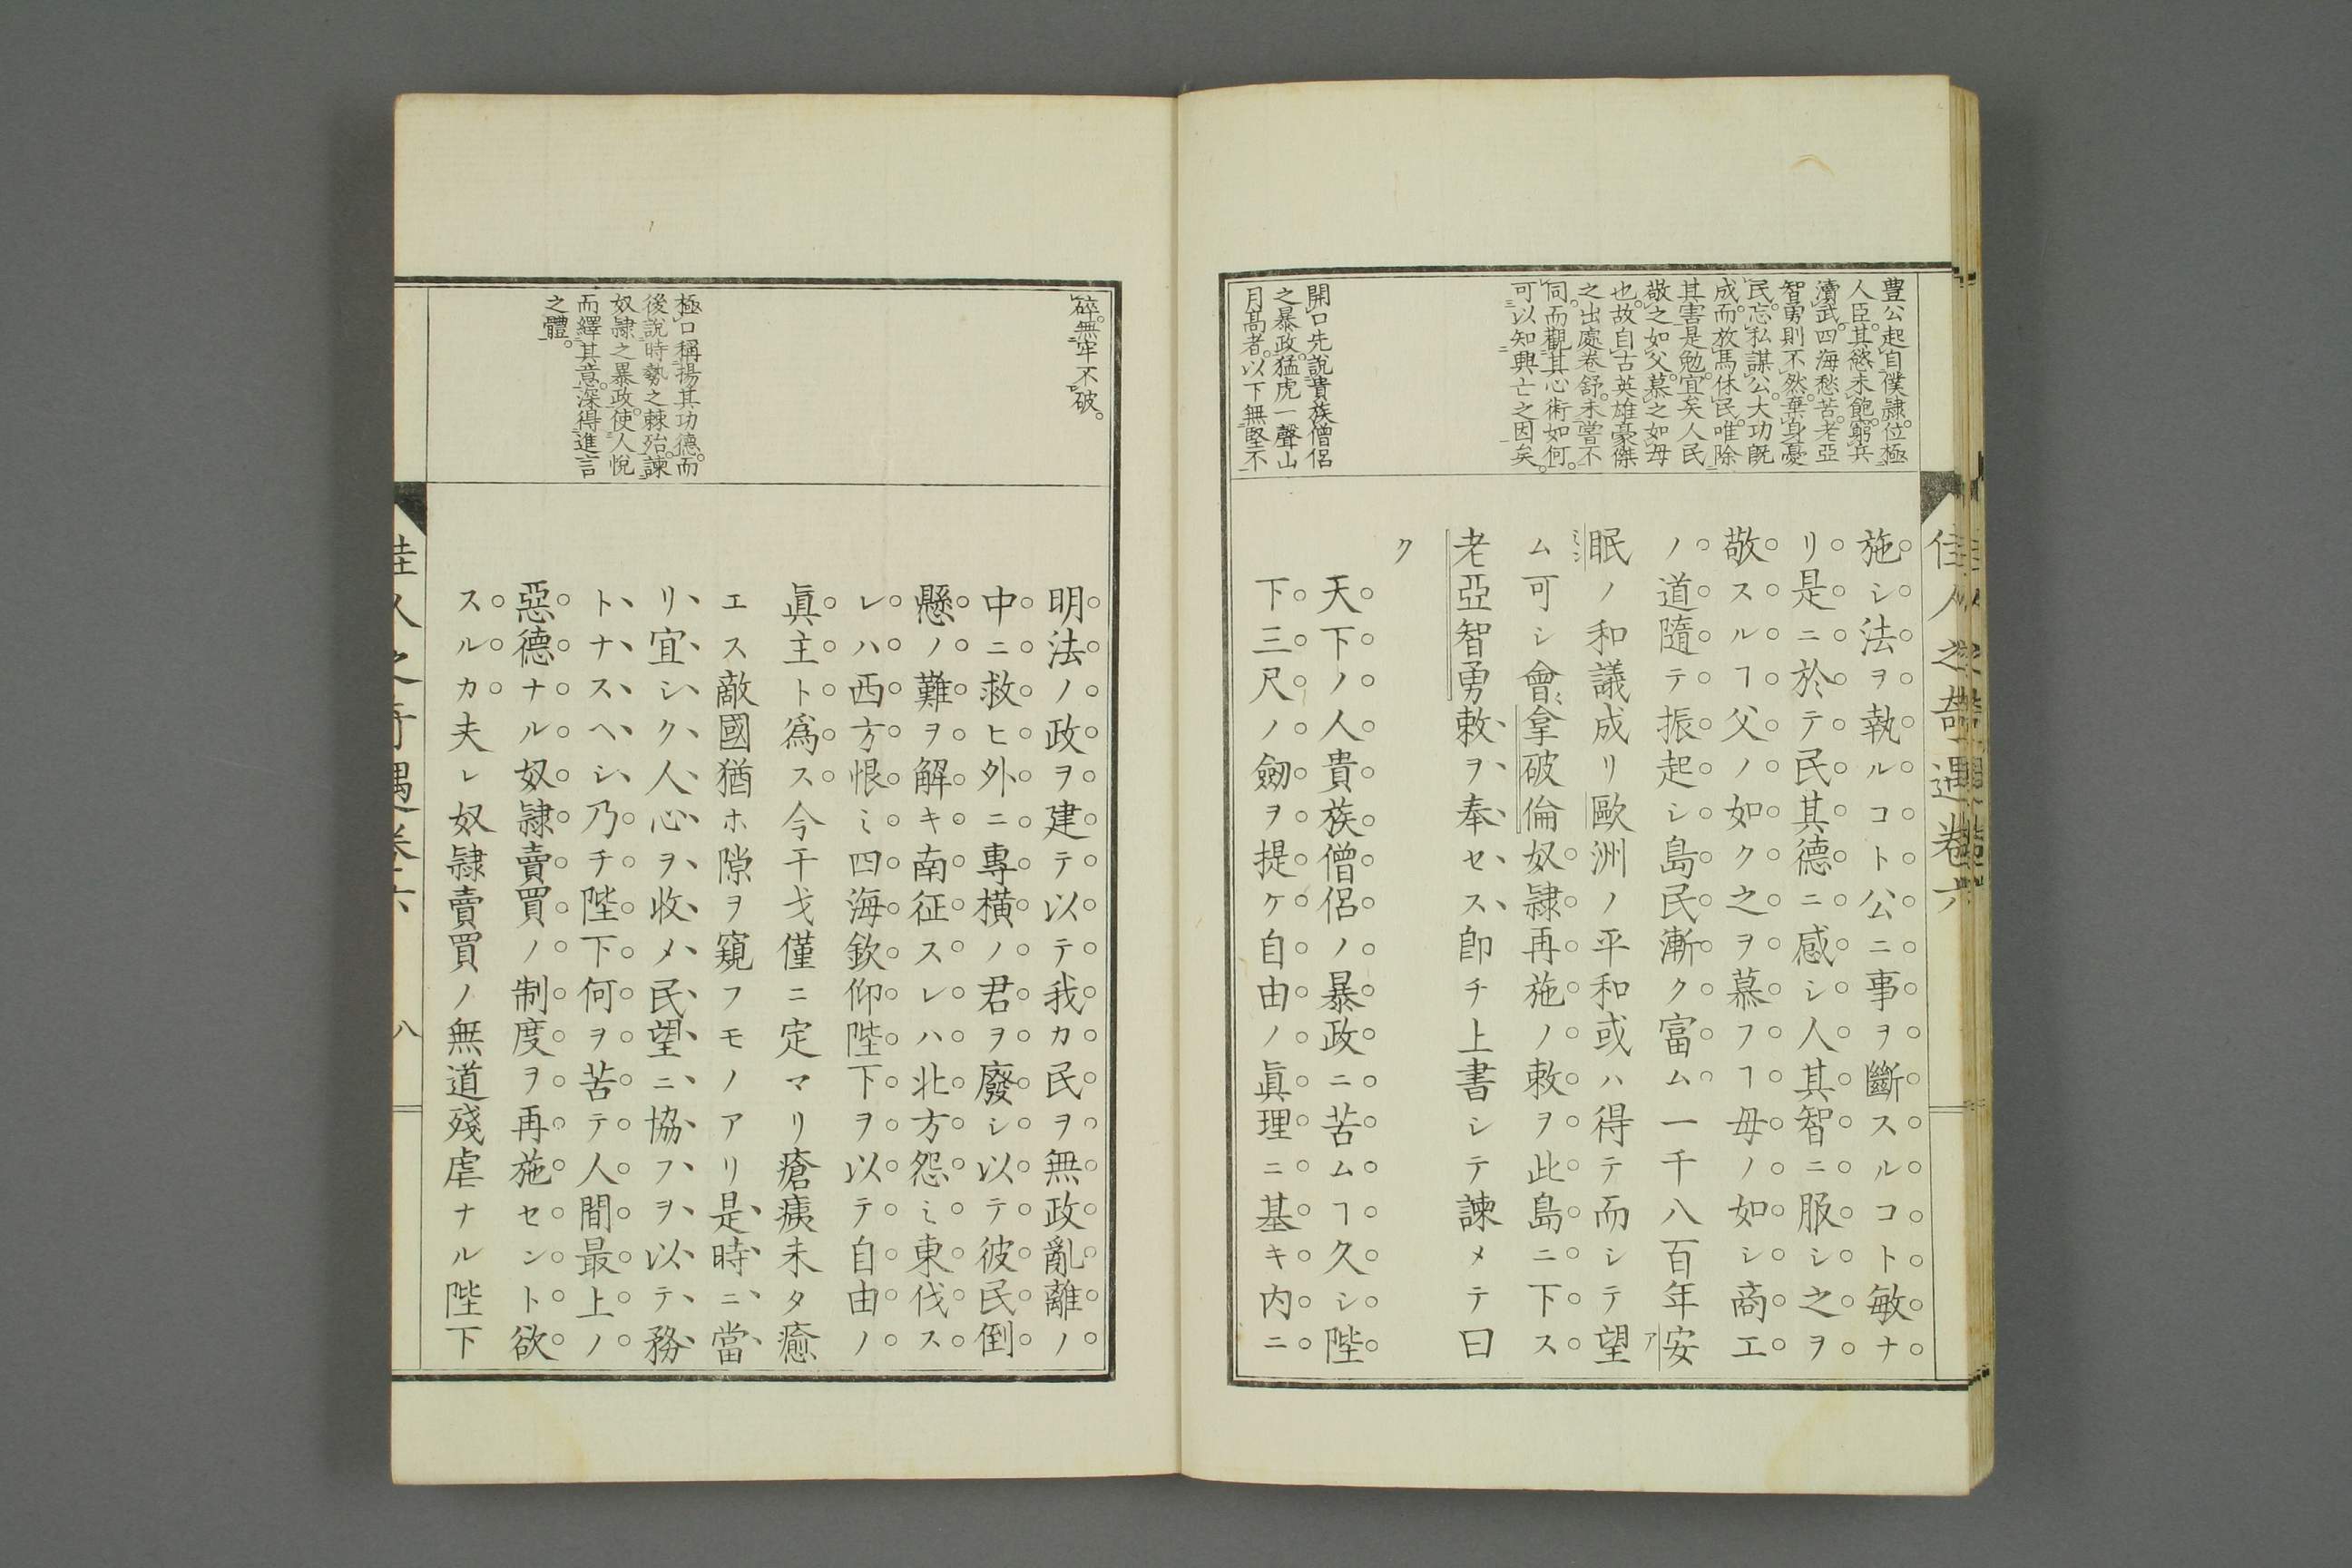 佳人之奇遇卷六
豊公起自僕隷位極
人臣其慾未飽窮兵
瀆武四海愁苦老亞
智勇則不然棄身憂
民忘私謀公大功旣
成而放馬休民唯除
其害是勉宜矣人民
敬之如父慕之如母
也故自古英雄豪傑
之出處卷舒未嘗不
同而觀其心術如何
可以知興亡之因矣
開口先說貴族僧侶
之暴政猛虎一聲山
月高者以下無堅不
施シ法ヲ執ルコト公ニ事ヲ斷スルコト敏ナ
リ是ニ於テ民其德ニ感シ人其智ニ服シ之ヲ
敬スルヿ父ノ如ク之ヲ慕フヿ母ノ如シ商工
ノ道隨テ振起シ島民漸ク富ム一千八百年安
眠ノ和議成リ歐洲ノ平和或ハ得テ而シテ望
ム可シ會拿破倫奴隷再施ノ敕ヲ此島ニ下ス
老亞智勇敕ヲ奉セス卽チ上書シテ諫メテ曰
ク
天下ノ人貴族僧侶ノ暴政ニ苦ムヿ久シ陛
下三尺ノ劒ヲ提ケ自由ノ眞理ニ基キ內ニ
碎無牢不破
極口稱揚其功德而
後說時勢之棘殆諫
奴隷之暴政使人悅
而繹其意深得進言
之體
明法ノ政ヲ建テ以テ我カ民ヲ無政亂離ノ
中ニ救ヒ外ニ專橫ノ君ヲ廢シ以テ彼民倒
懸ノ難ヲ解キ南征スレハ北方怨ミ東伐ス
レハ西方恨ミ四海欽仰陛下ヲ以テ自由ノ
眞主ト爲ス今干戈僅ニ定マリ瘡痍未タ癒
エス敵國猶ホ隙ヲ窺フモノアリ是時ニ當
リ宜シク人心ヲ收メ民望ニ協フヲ以テ務
トナスヘシ乃チ陛下何ヲ苦テ人間最上ノ
惡德ナル奴隷賣買ノ制度ヲ再施セント欲
スルカ夫レ奴隷賣買ノ無道殘虐ナル陛下
佳人之奇遇卷六
八